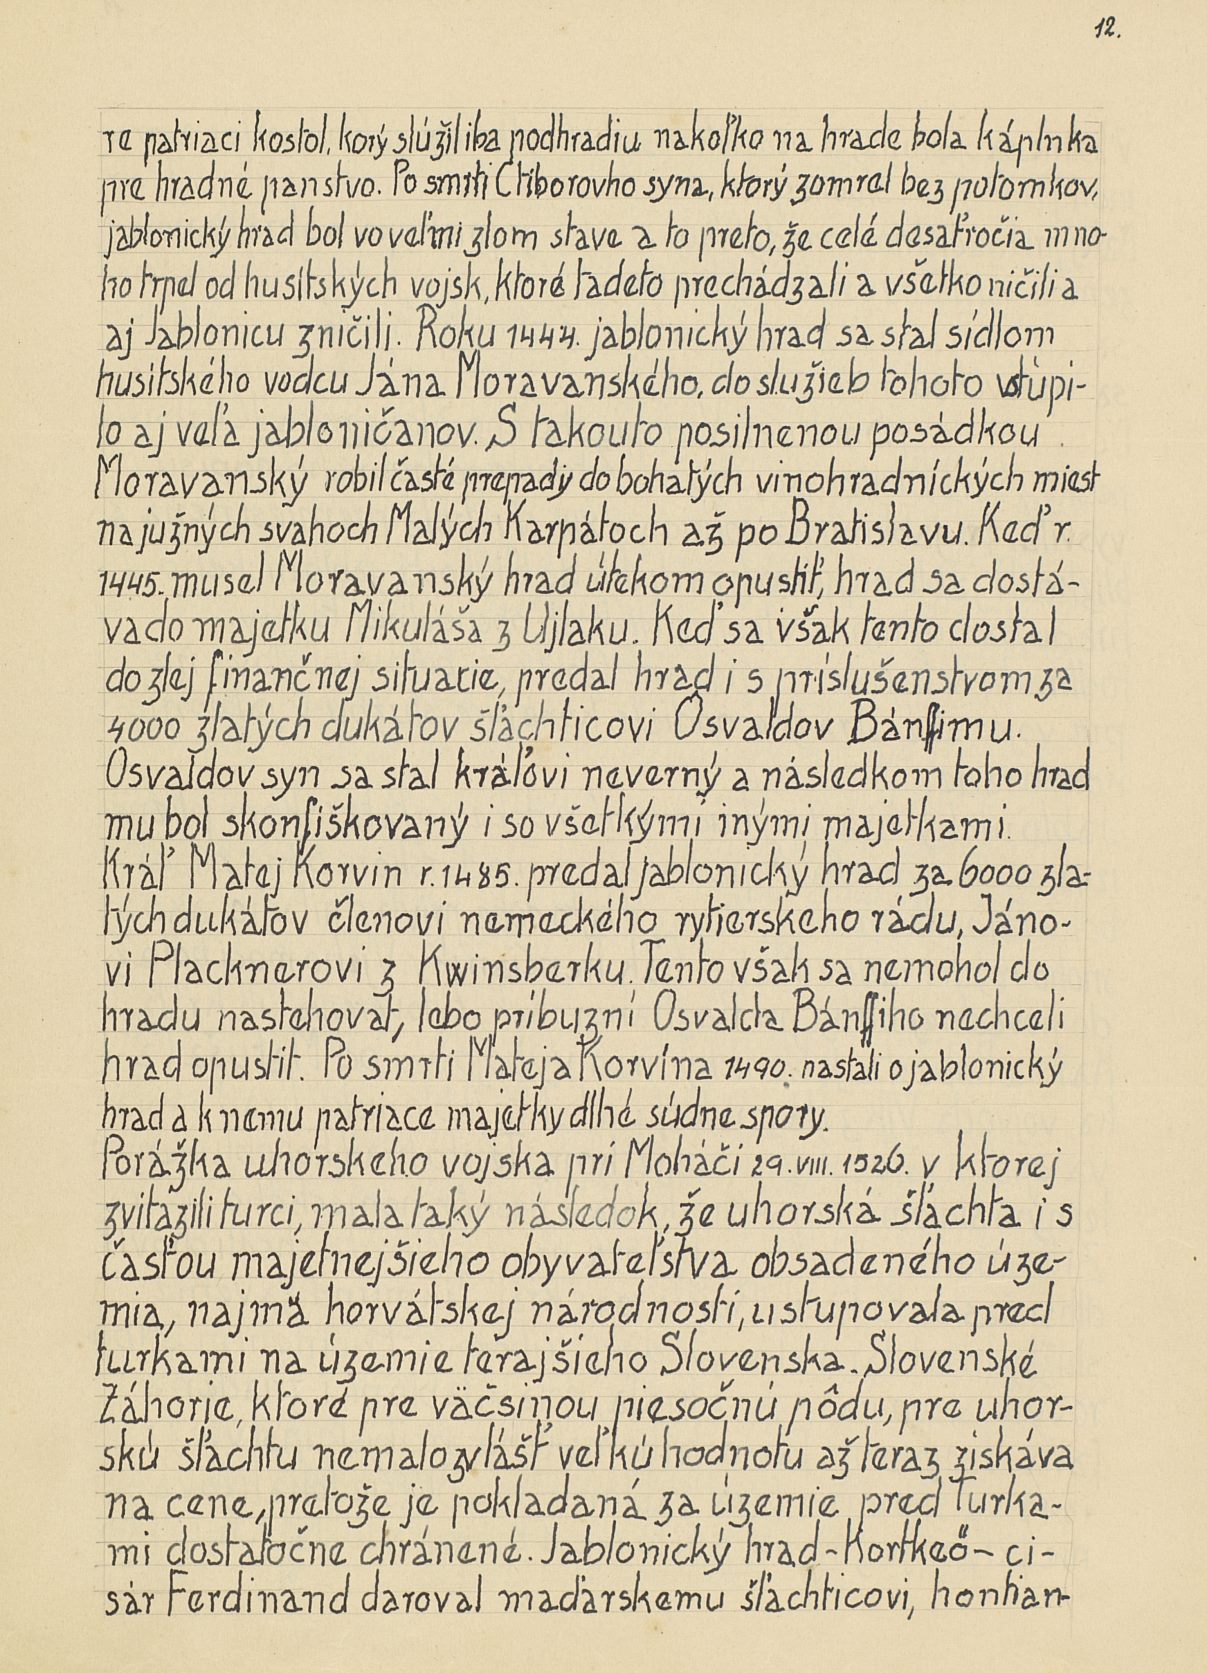 12.
re patriaci kostol, korý slúžil iba podhradiu nakoľko na hrade bola káplnka
pre hradné panstvo. Po smrti Ctiborovho syna, ktorý zomrel bez potomkov,
jablonický hrad bol vo veľmi zlom stave a to preto, že celé desaťročia mno-
ho trpel od husítských vojsk, ktoré tadeto prechádzali a všetko ničili a
aj Jablonicu zničili. Roku 1444. jablonický hrad sa stal sídlom
husítského vodcu Jána Moravanského, do služieb tohoto vstúpi-
lo aj veľa jabloničanov. S takouto posilnenou posádkou
Moravanský robil časté prepady do bohatých vinohradníckých miest
na južných svahoch Malých Karpátoch až po Bratislavu. Keď r.
1445. musel Moravanský hrad útekom opustiť, hrad sa dostá-
va do majetku Mikuláša z Ujlaku. Keď sa však tento dostal
do zlej finančnej situacie, predal hrad i s príslušenstvom za
4000 zlatých dukátov šľachticovi Osvaldov Bánffimu.
Osvaldov syn sa stal kráľovi neverný a následkom toho hrad
mu bol skonfiškovaný i so všetkými inými majetkami.
Kráľ Matej Korvin r. 1485. predal jablonický hrad za 6000 zla-
tých dukátov členovi nemeckého rytierskeho rádu, Jáno-
vi Placknerovi z Kwinsberku. Tento však sa nemohol do
hradu nastehovat, lebo príbuzní Osvalda Bánffiho nechceli
hrad opustit. Po smrti Mateja Korvína 1490. nastali o jablonický
hrad a k nemu patriace majetky dlhé súdne spory.
Porážka uhorského vojska pri Moháči 29. VIII. 1526. v ktorej
zvitazili turci, mala taký následok, že uhorská šľachta i s
časťou majetnejšieho obyvateľstva obsadeného úze-
mia, najmä horvátskej národnosti, ustupovala pred
turkami na územie terajšieho Slovenska. Slovenské
Záhorie, ktoré pre väčsinou piesočnú pôdu, pre uhor-
skú šľachtu nemalo zvlášť veľkú hodnotu až teraz získáva
na cene, pretože je pokladaná za územie pred Turka-
mi dostatočne chránené. Jablonický hrad - Kortkeö - ci-
sár Ferdinand daroval maďarskemu šľachticovi, hontian-